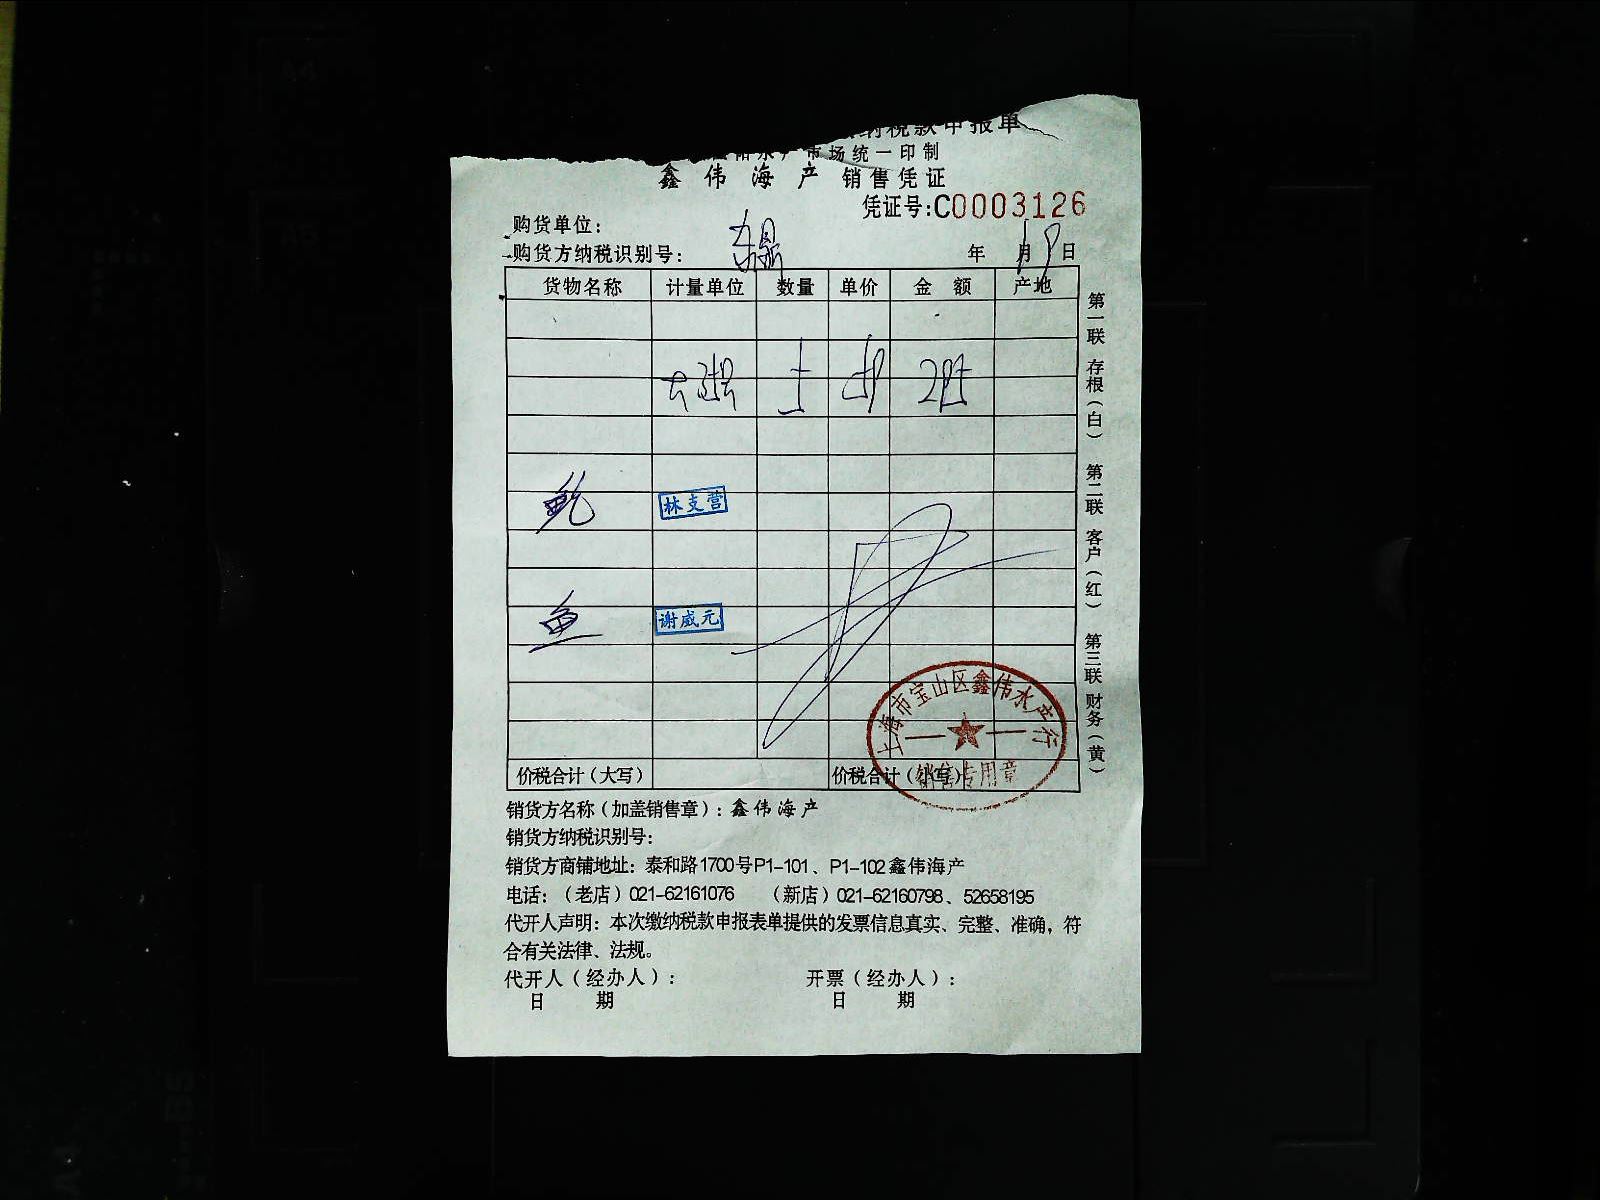 纳税款申报单
阳水产市场统一印制
鑫伟海产 销售凭证
凭证号:C0003126
购货单位:
购货方纳税识别号:
年 1月9日
货物名称 计量单位 数量 单价 金额 产地
林支营
鱼 谢威元
价税合计(大写) 价税合计(小写)
上海市宝山区鑫伟水产行
销售专用章
第一联 存根(白) 第二联 客户(红) 第三联 财务(黄)
销货方名称(加盖销售章):鑫伟海产
销货方纳税识别号:
销货方商铺地址:泰和路1700号P1-101、P1-102鑫伟海产
电话:(老店)021-62161076 (新店)021-62160798、52658195
代开人声明:本次缴纳税款申报表单提供的发票信息真实、完整、准确,符
合有关法律、法规。
代开人(经办人): 开票(经办人):
日期 日期